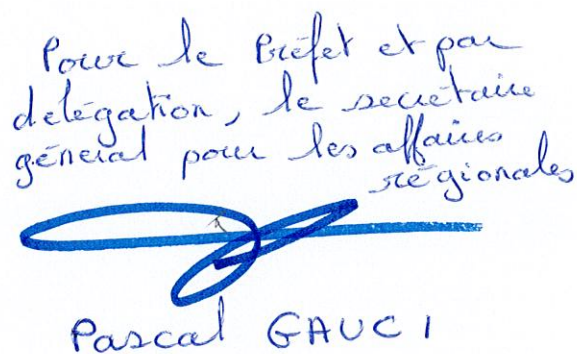 Pour le Préfet et par
delégation, le secrétaire
général pour les affaires
régionales
Pascal GAUCI